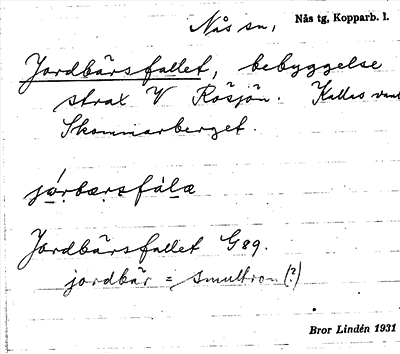 Nås sn, Nås tg, Kopparb. l.
Jordbärsfallet, bebyggelse
strax V Rösjön. Kallas vanl
Skommarberget.
Jordbärsfallet G89.
jordbär = smultron (?)
Bror Lindén 1931